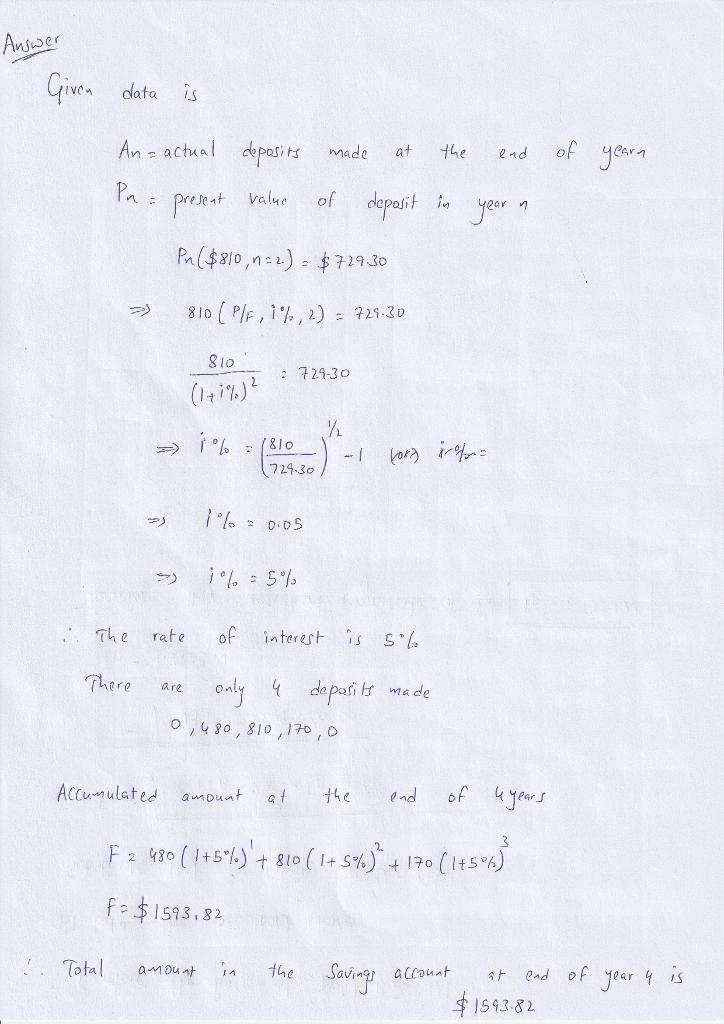 Answer
Given data is
An = actual deposits made at the end of year n
Pn = present value of deposit in year n
Pn($810, n=2) = $729.30
⇒ 810 (P/F, i%, 2) = 729.30
810 / (1+i%)² = 729.30
⇒ i% = (810 / 729.30)^1/2 - 1 (or)
⇒ i% = 0.05
⇒ i% = 5%
∴ The rate of interest is 5%
There are only 4 deposits made
0, 480, 810, 170, 0
Accumulated amount at the end of 4 years
F = 480 (1+5%)¹ + 810 (1+5%)² + 170 (1+5%)³
F = $1593.82
∴ Total amount in the Savings account at end of year 4 is
$1593.82